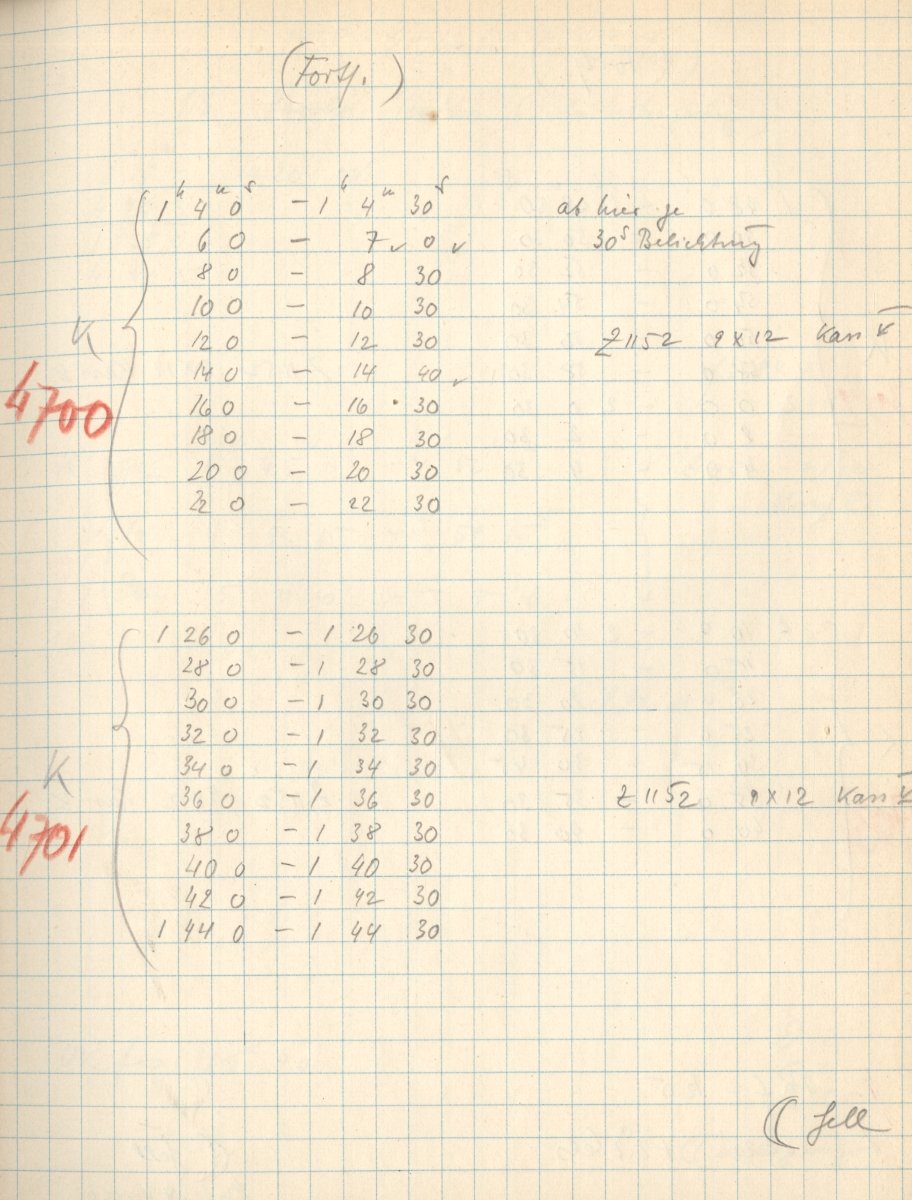 (Forts.)
1ʰ 4ᵐ 0ˢ – 1ʰ 4ᵐ 30ˢ ab hier je
6 0 – 7 ✓ 0 ✓ 30ˢ Belichtung
8 0 – 8 30
10 0 – 10 30
K 12 0 – 12 30 Z 1152 9 x 12 Kass V
14 0 – 14 40 ✓
4700 16 0 – 16 30
18 0 – 18 30
20 0 – 20 30
22 0 – 22 30
1 26 0 – 1 26 30
28 0 – 1 28 30
30 0 – 1 30 30
32 0 – 1 32 30
K 34 0 – 1 34 30
36 0 – 1 36 30 Z 1152 9 x 12 Kass V
4701 38 0 – 1 38 30
40 0 – 1 40 30
42 0 – 1 42 30
1 44 0 – 1 44 30
☾ hell